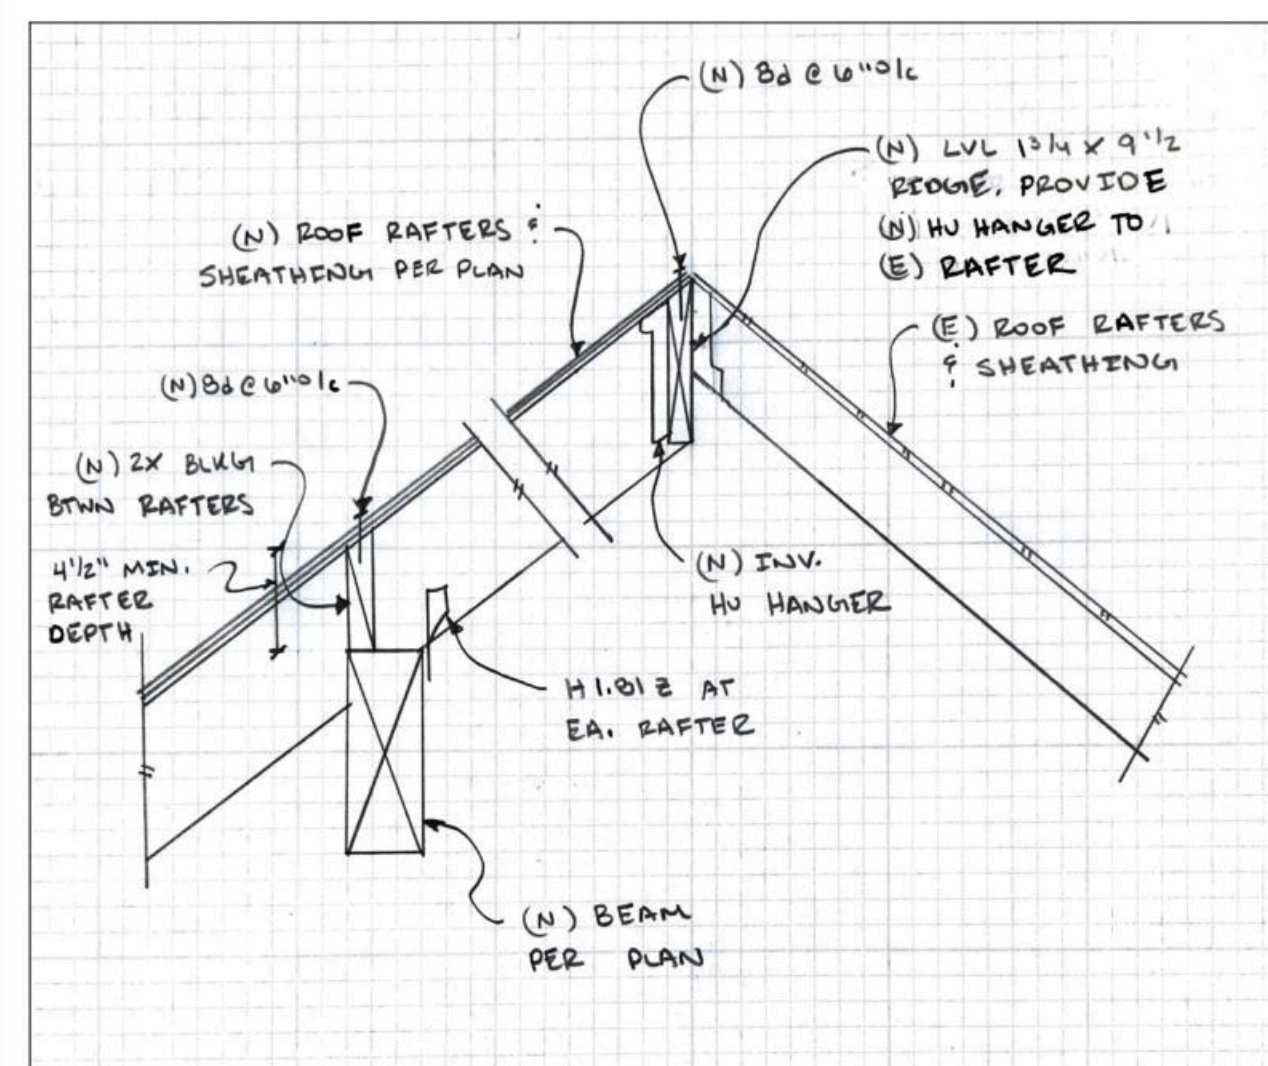 (N) 8d @ 6" o/c
(N) LVL 1 3/4 x 9 1/2
RIDGE, PROVIDE
(N) HU HANGER TO
(E) RAFTER
(N) ROOF RAFTERS &
SHEATHING PER PLAN
(E) ROOF RAFTERS
& SHEATHING
(N) 8d @ 6" o/c
(N) 2X BLKG
BTWN RAFTERS
4 1/2" MIN.
RAFTER
DEPTH
(N) INV.
HU HANGER
H1.81Z AT
EA. RAFTER
(N) BEAM
PER PLAN